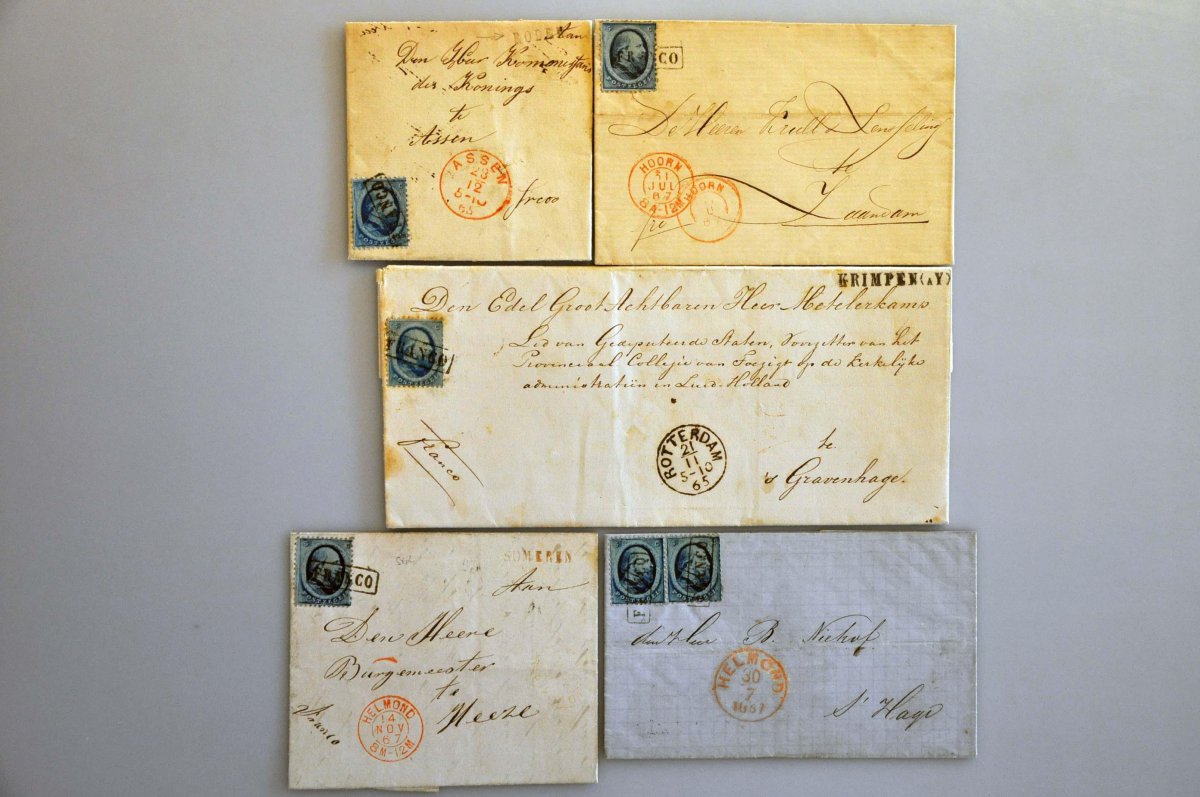 RODEN
Aan
Den Heer
des Konings
te
Assen
FRANCO
ASSEN
23
12
8-10
65
frcoo
FRANCO
De Heeren
te
Zaandam
HOORN
31
JUL
67
8A-12M
HOORN
KRIMPEN(AY)
Den Edel Groot Achtbaren Heer Metelerkams
Lid van Gedeputeerde Staten, Voorzitter van het
Provinciaal Collegie van Toezigt op de kerkelijke
administratiën in Zuid-Holland
FRANCO
ROTTERDAM
21
11
5-10
65
te
's Gravenhage.
Franco
SOMEREN
FRANCO
Aan
Den Heere
Burgemeester
te
Heeze
Franco
HELMOND
14
NOV
67
8M-12M
FRANCO
FRANCO
B. Niehof
HELMOND
30
7
1867
S' Hage